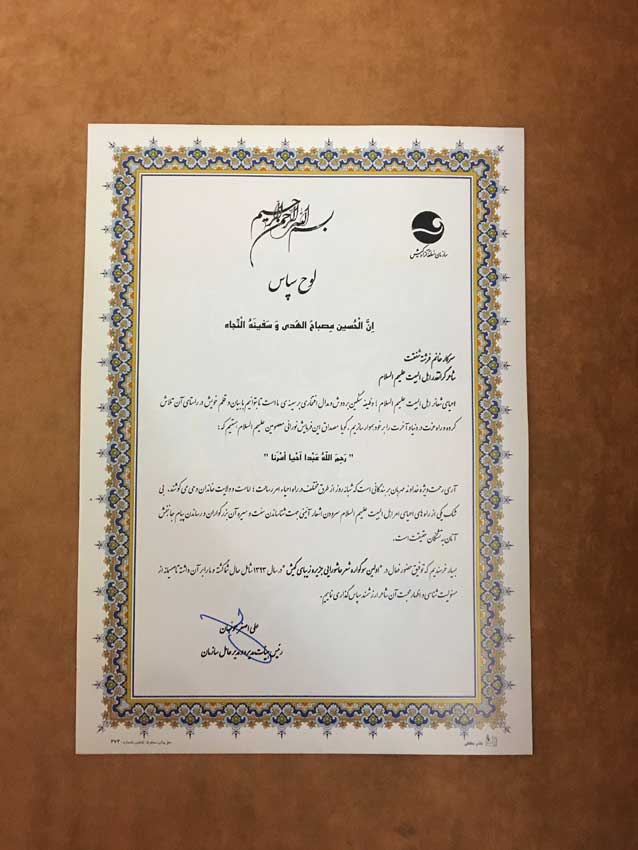 بسم الله الرحمن الرحیم
سازمان منطقه آزاد کیش
لوح سپاس
اِنَّ الْحُسین مِصباحُ الهُدی وَ سَفینَهُ النَّجاه
سرکار خانم فرشته شفقت
شاعر گرانقدر اهل البیت علیهم السلام
احیای شعائر اهل البیت علیهم السلام ؛ وظیفه سنگین بر دوش و مدال افتخاری بر سینه‌ی ما است تا بتوانیم با بیان و قلم خویش در راستای آن تلاش
کرده و راه عزت در دنیا و آخرت را بر خود هموار سازیم ، گویا مصداق این فرمایش نورانی معصومین علیهم السلام هستیم که :
" رَحِمَ اللهُ عَبدا اَحْیا اَمْرَنا "
آری رحمت ویژه خداوند مهربان بر بندگانی است که شبانه روز از طرق مختلف در راه احیاء امر رسالت ؛ امامت و ولایت خاندان وحی می کوشند. بی
شک یکی از راه های احیای امر اهل البیت علیهم السلام سرودن اشعار آئینی جهت شناساندن سنت و سیره آن بزرگواران و رساندن پیام جانبخش
آنان به تشنگان حقیقت است.
بسیار خرسندیم که توفیق حضور فعال در " اولین سوگواره شعر عاشورایی جزیره زیبای کیش " در سال ۱۳۹۳ شامل حال شما گشته و ما را بر آن داشته تا صمیمانه از
مسئولیت شناسی و اظهار محبت آن شاعر ارزشمند سپاس گذاری نماییم.
علی اصغر مونسان
رئیس هیئت مدیره و مدیرعامل سازمان